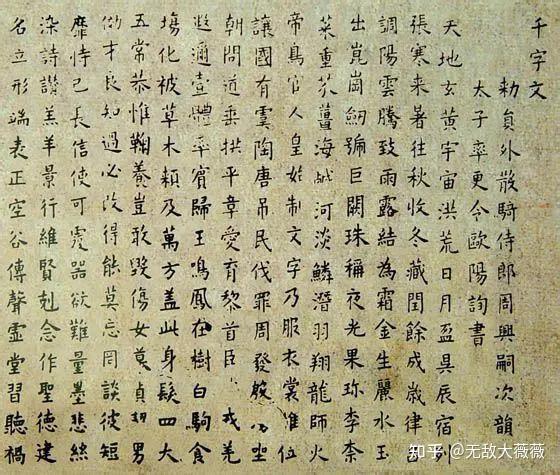 千字文
勅員外散騎侍郎周興嗣次韻
太子率更令歐陽詢書
天地玄黃宇宙洪荒日月盈昃辰宿列
張寒来暑往秋收冬藏閏餘成歲律呂
調陽雲騰致雨露結為霜金生麗水玉
出崑崗劒號巨闕珠稱夜光果珎李柰
菜重芥薑海醎河淡鱗潛羽翔龍師火
帝鳥官人皇始制文字乃服衣裳推位
讓國有虞陶唐吊民伐罪周發殷坐
朝問道垂拱平章愛育黎首臣戎羌
遐邇壹體率賓歸王鳴鳳在樹白駒食
場化被草木賴及萬方盖此身髮四大
五常恭惟鞠養豈敢毀傷女慕貞男
效才良知過必改得能莫忘罔談彼短
靡恃己長信使可覆器欲難量墨悲絲
染詩讚羔羊景行維賢剋念作聖德建
名立形端表正空谷傳聲虛堂習聽禍
知乎 @无敌大薇薇